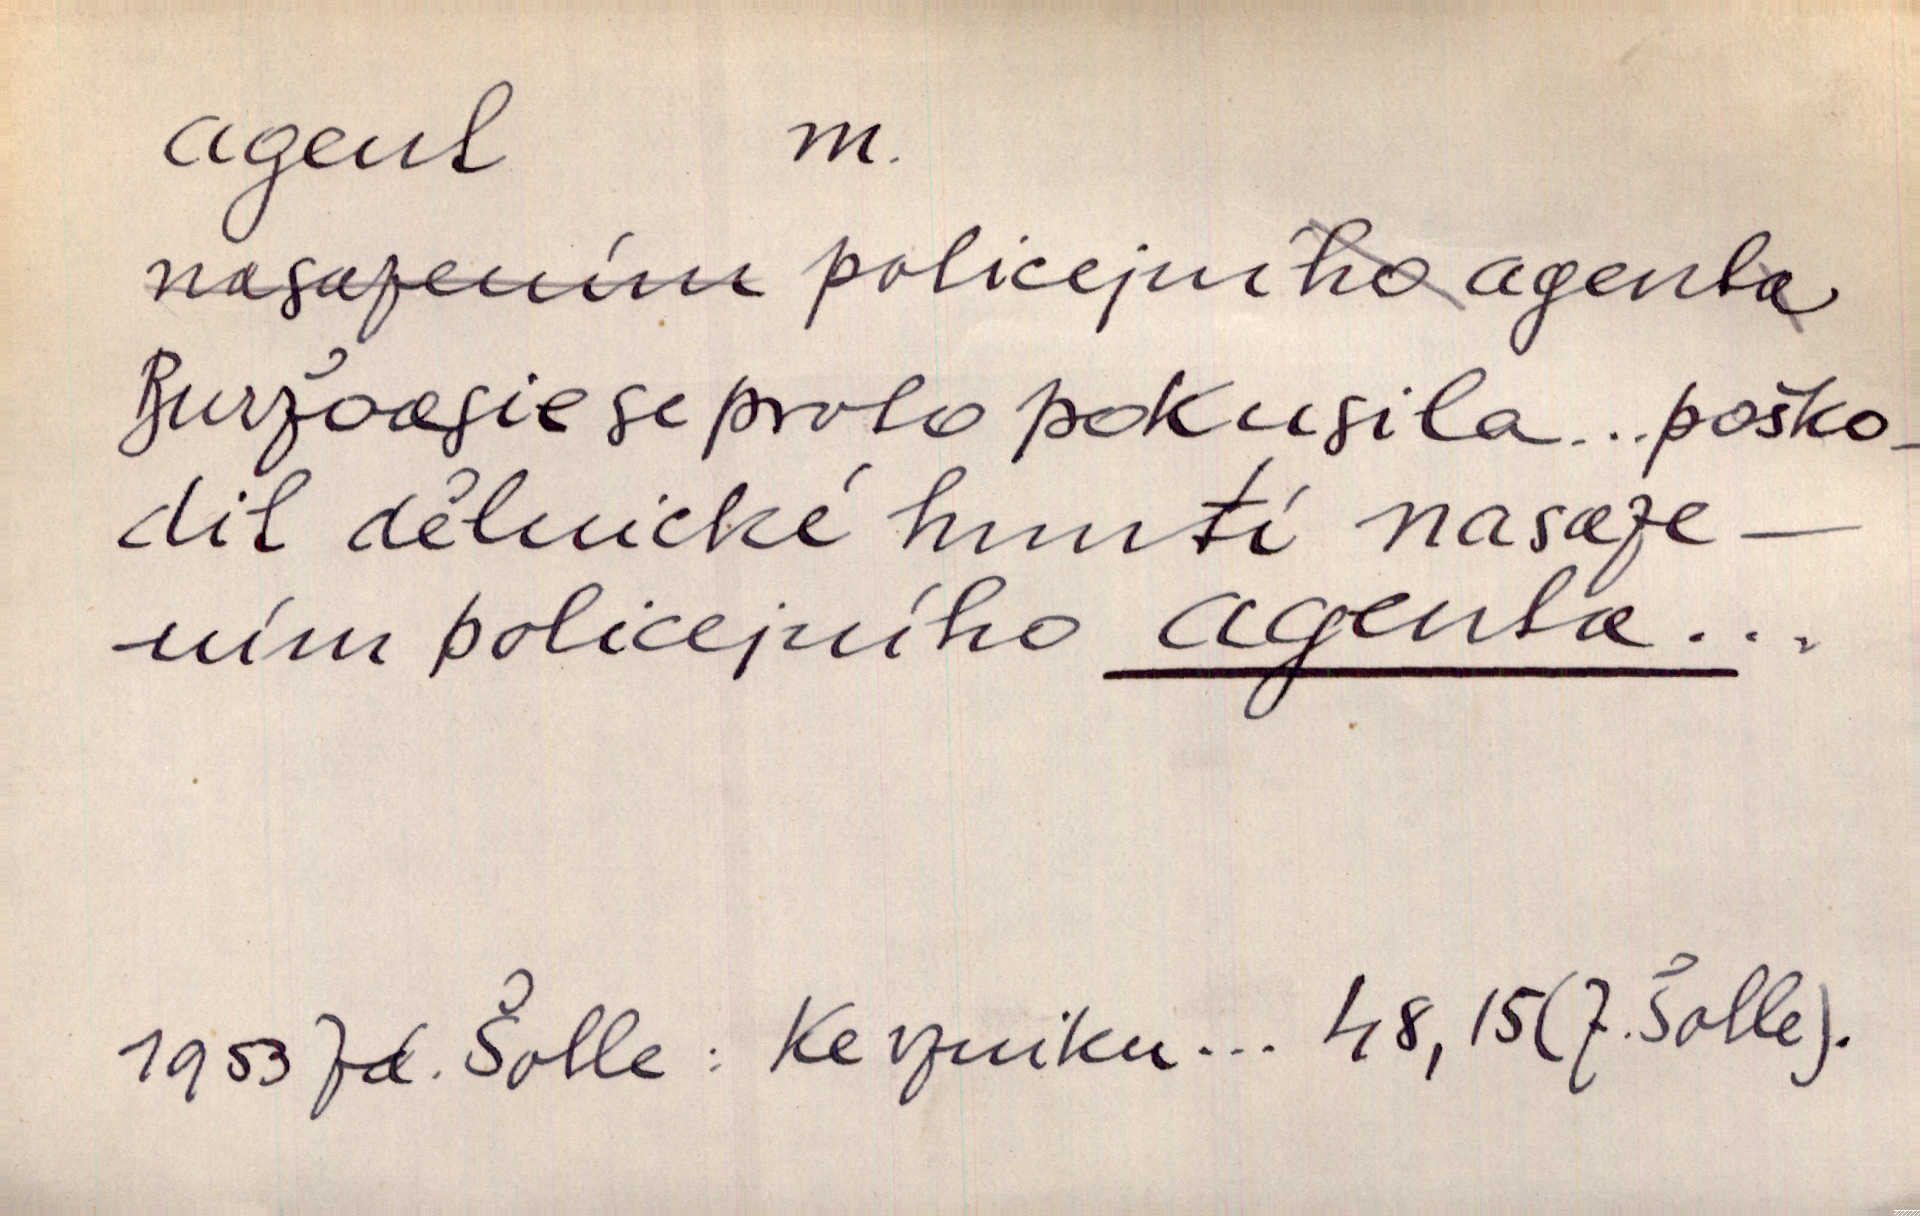 agent m.
nasazením policejního agenta
Buržoasie se proto pokusila... poško-
dit dělnické hnutí nasaze-
-ním policejního agenta...
1953 Zd. Šolle: Ke vzniku... 48, 15 (Z. Šolle).